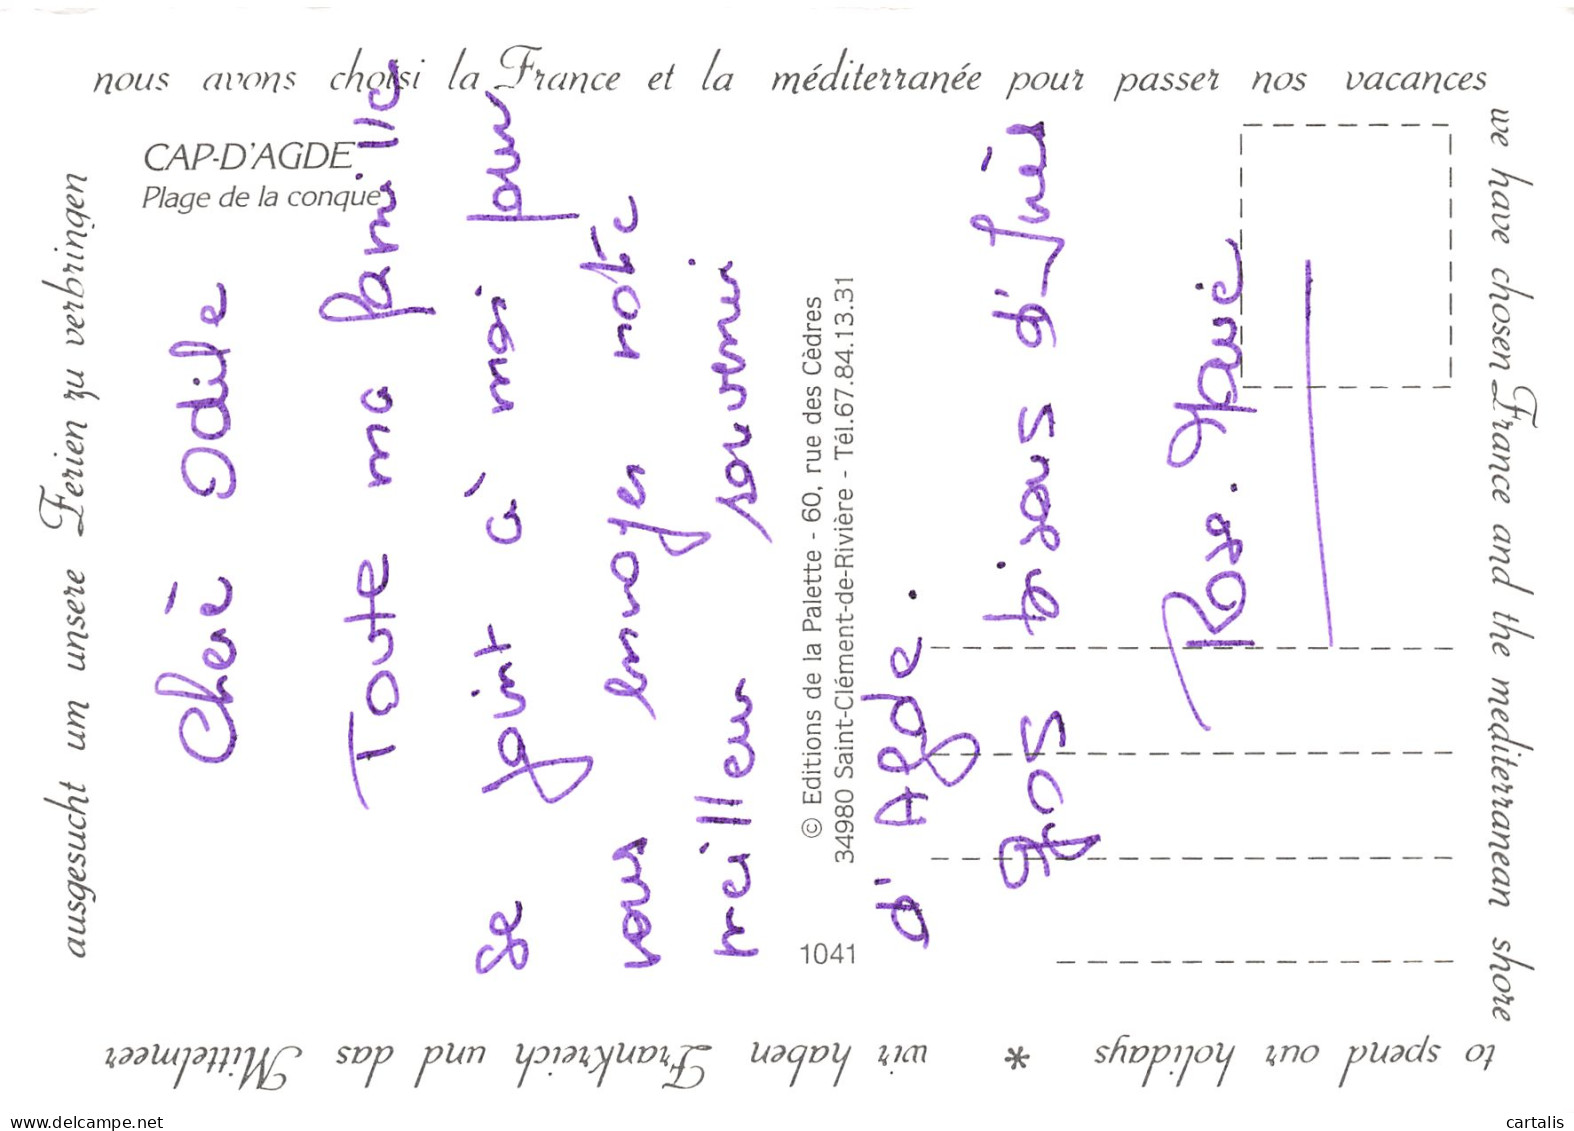 nous avons choisi la France et la méditerranée pour passer nos vacances
we have chosen France and the mediterranean shore
to spend our holidays * wir haben Frankreich und das Mittelmeer
ausgesucht um unsere Ferien zu verbringen
CAP-D'AGDE
Plage de la conque
© Editions de la Palette - 60, rue des Cèdres
34980 Saint-Clément-de-Rivière - Tél.67.84.13.31
1041
Cheré Odile
Toute ma famille
se joint à moi pour
vous envoyer notre
meilleur souvenir
d'Agde.
gos bisous d'
Rose. Marie
www.delcampe.net
cartalis